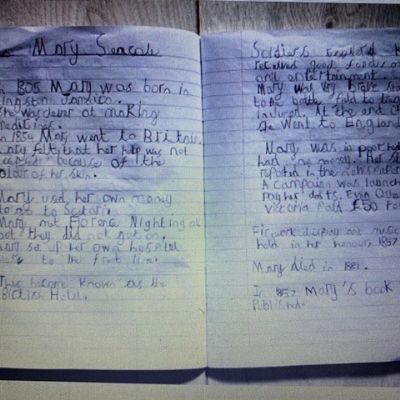 Mary Seacole
In 1805 Mary was born in
Kingston Jamaica.
She was clever at making
medicines.
In 1854 Mary went to Britain.
Mary felt that her help was not
because of the
colour of her skin.
Mary used her own money
to go to Scutari.
Mary met Florence Nightingale
but they did not get on.
Mary set up her own hospital
close to the front line.
This became known as the
British Hotel.
Soldiers
received good food
and entertainment.
Mary was very brave
to the battle field to
injured. At the end of
she went to England
Mary was in poor health
had no money. Her
reported in the newspaper
A campaign was launch
pay her debts. Even Queen
Victoria paid £50 to
Firework display and music
held in her honour 1857
Mary died in 1881.
In 1857 Mary's book
published.